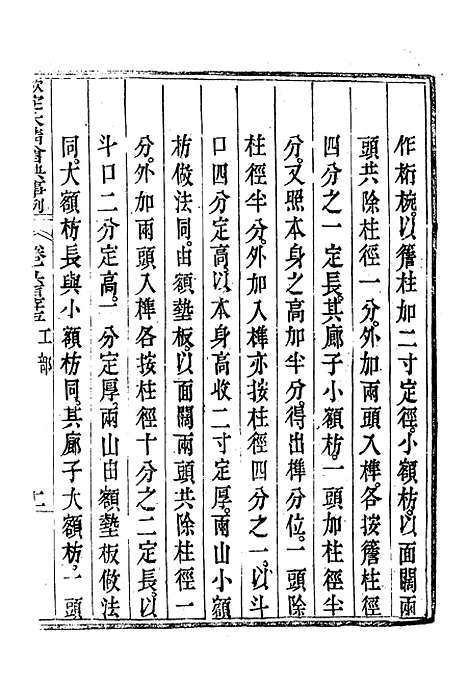 作桁椀。以簷柱加二寸定徑。小額枋。以面闊兩
頭共除柱徑一分。外加兩頭入榫。各按簷柱徑
四分之一定長。其廊子小額枋。一頭加柱徑半
分。又照本身之高加半分。得出榫分位。一頭除
柱徑半分。外加入榫亦按柱徑四分之一。以斗
口四分定高。以本身高收二寸定厚。兩山小額
枋做法同。由額墊板。以面闊兩頭共除柱徑一
分。外加兩頭入榫各按柱徑十分之二定長。以
斗口二分定高。一分定厚。兩山由額墊板做法
同。大額枋長與小額枋同。其廊子大額枋。一頭
欽定大清會典事例
工部